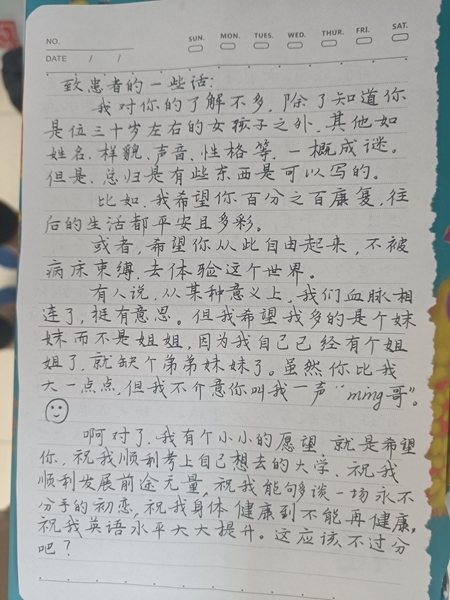 NO.
DATE / /
SUN. MON. TUES. WED. THUR. FRI. SAT.
致患者的一些话:
我对你的了解不多,除了知道你
是位三十岁左右的女孩子之外,其他如
姓名、样貌、声音、性格等,一概成谜。
但是,总归是有些东西是可以写的。
比如,我希望你百分之百康复,往
后的生活都平安且多彩。
或者,希望你从此自由起来,不被
病床束缚,去体验这个世界。
有人说,从某种意义上,我们血脉相
连了,挺有意思。但我希望我多的是个妹
妹而不是姐姐,因为我自己已经有个姐
姐了,就缺个弟弟妹妹了。虽然你比我
大一点点,但我不介意你叫我一声“ming哥”。
啊对了,我有个小小的愿望 就是希望
你,祝我顺利考上自己想去的大学,祝我
顺利发展前途无量,祝我能够谈一场永不
分手的初恋,祝我身体健康到不能再健康,
祝我英语水平大大提升。这应该不过分
吧?